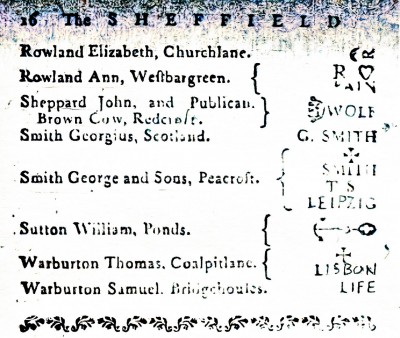 16 The SHEFFIELD
Rowland Elizabeth, Churchlane.
Rowland Ann, Weſtbargreen. { R
Sheppard John, and Publican. } WOLF
Brown Cow, Redcroſt.
Smith Georgius, Scotland. G. SMITH
SMITH
Smith George and Sons, Peacroſt. { T S
LEIPZIG
Sutton William, Ponds. {
Warburton Thomas, Coalpitlane. { LISBON
Warburton Samuel. Bridgehouſes. LIFE